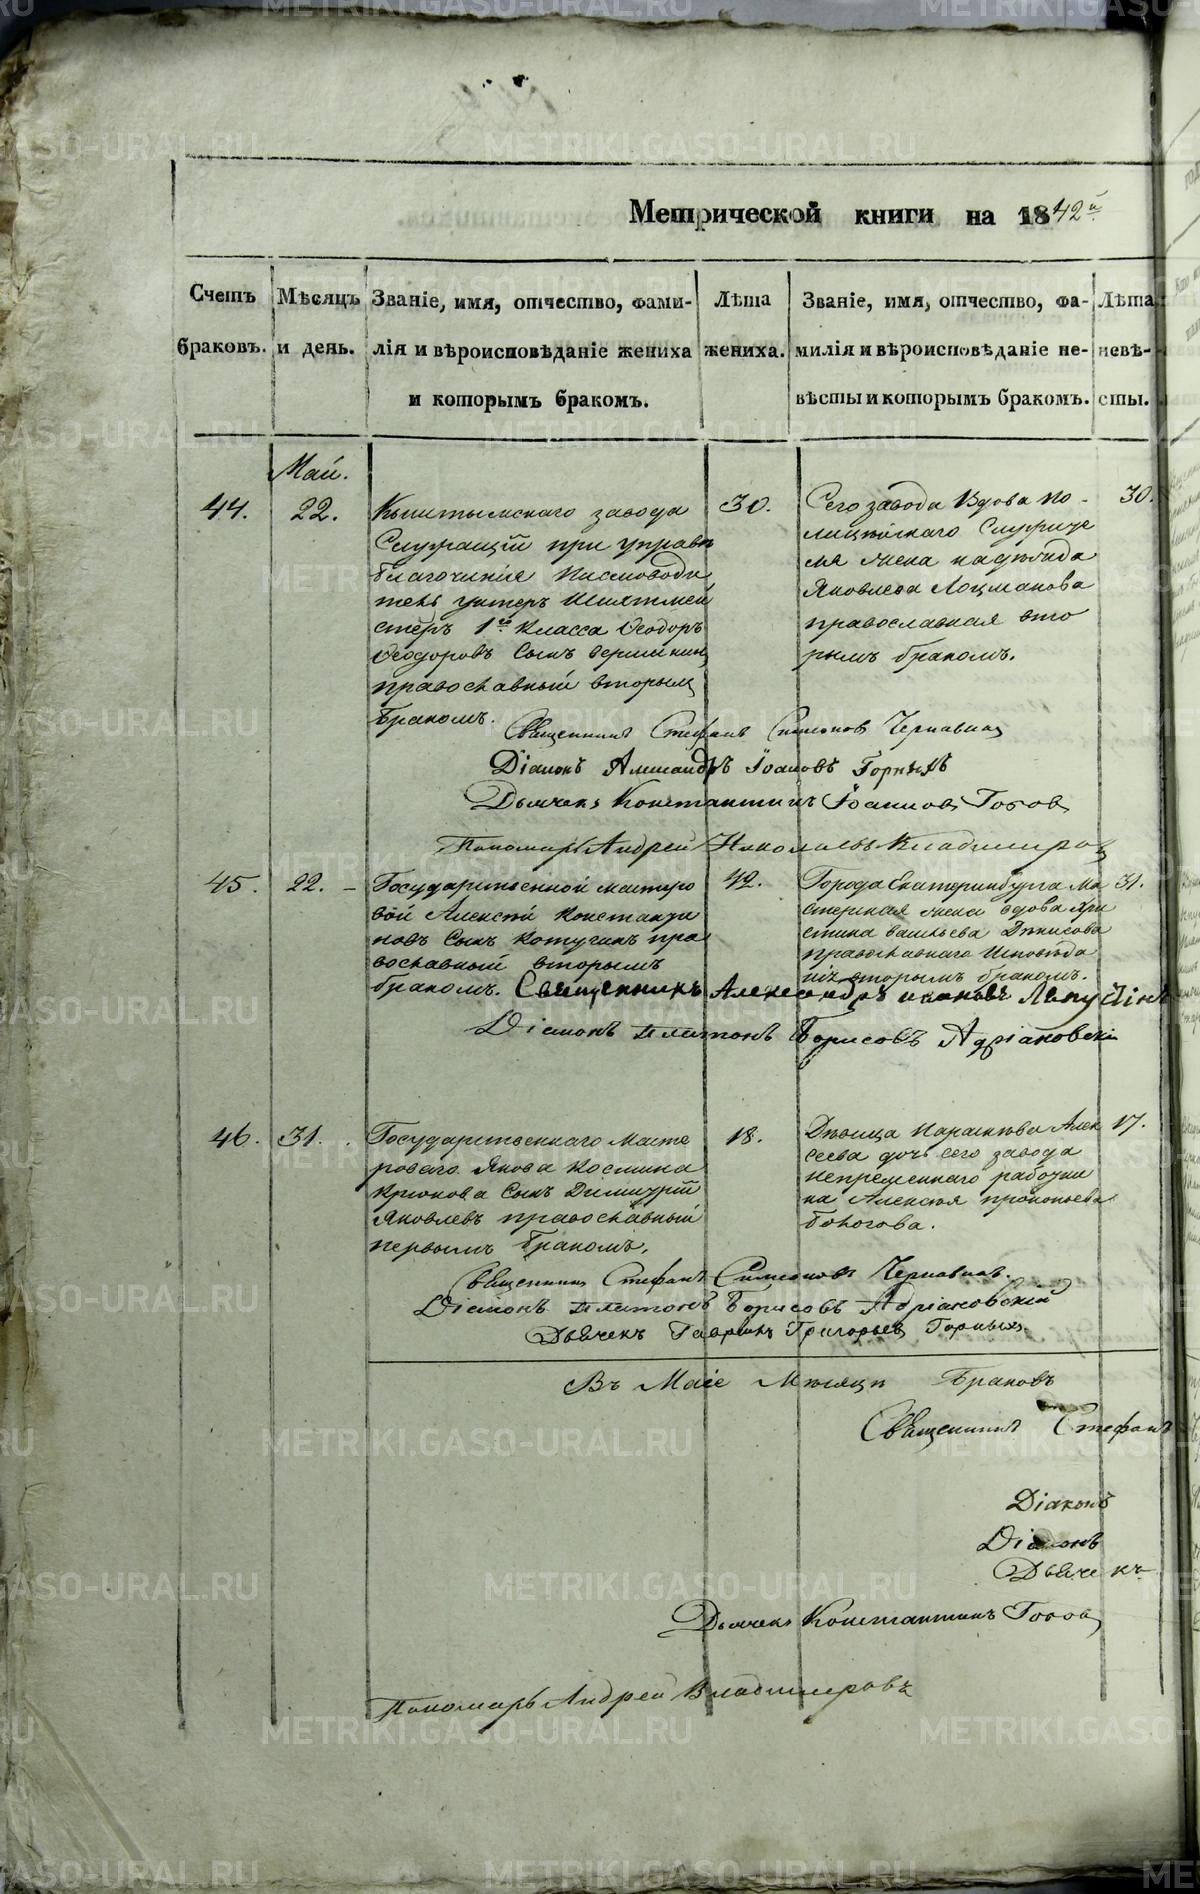 Метрической книги на 1842й
Счетъ Мѣсяцъ Званіе, имя, отчество, фами- Лѣта Званіе, имя, отчество, фа- Лѣта
браковъ. и день. лія и вѣроисповѣданіе жениха жениха. милія и вѣроисповѣданіе не- невѣ-
и которымъ бракомъ. вѣсты и которымъ бракомъ. сты.
Май.
44. 22. Кыштымскаго завода
Служащій при управѣ
благочинія писмоводи
тель унтеръ Шихтмей
стеръ 1го класса Ѳеодоръ
Ѳеодоровъ Сынъ
православный вторымъ
бракомъ.
30.
Сего завода Вдова По-
лицейскаго Служите
ля жена надѣжда
Яковлева Лоцманова
православная вто
рымъ бракомъ.
30.
Священникъ Стефанъ Симеоновъ Чернавинъ
Діаконъ Александръ Іоановъ Горныхъ
Дьячекъ Константинъ Іоанновъ Топовъ
Пономарь Андрей Николаевъ Владимировъ
45. 22. Государственной мастеро
вой Алексѣй Константи
новъ Сынъ Котугинъ пра
вославный вторымъ
бракомъ.
42.
Города Екатеринбурга Ма
стерская жена вдова Хри
стина васильева Денисова
православнаго Исповѣда
нія вторымъ бракомъ.
31.
Священникъ Александръ Иоановъ Лапустинъ
Діаконъ Платонъ Борисовъ Адріановскій
46. 31. Государственнаго масте
роваго Якова Космина
Крюкова Сынъ Димитрій
Яковлевъ православный
первымъ бракомъ.
18.
Дѣвица Параскева Алек
сеева дочь сего завода
непременнаго работни
ка Алексея прокопьева
болотова.
17.
Священникъ Стефанъ Симеоновъ Чернавинъ.
Діаконъ Платонъ Борисовъ Адріановскій
Дьячекъ Гаврилъ Григорьевъ Горныхъ.
Въ Маіе Месяце Браковъ
Священникъ Стефанъ
Діаконъ
Діаконъ
Дьячекъ
Дьячекъ Константинъ Топовъ
Пономарь Андрей Владимеровъ
METRIKI.GASO-URAL.RU